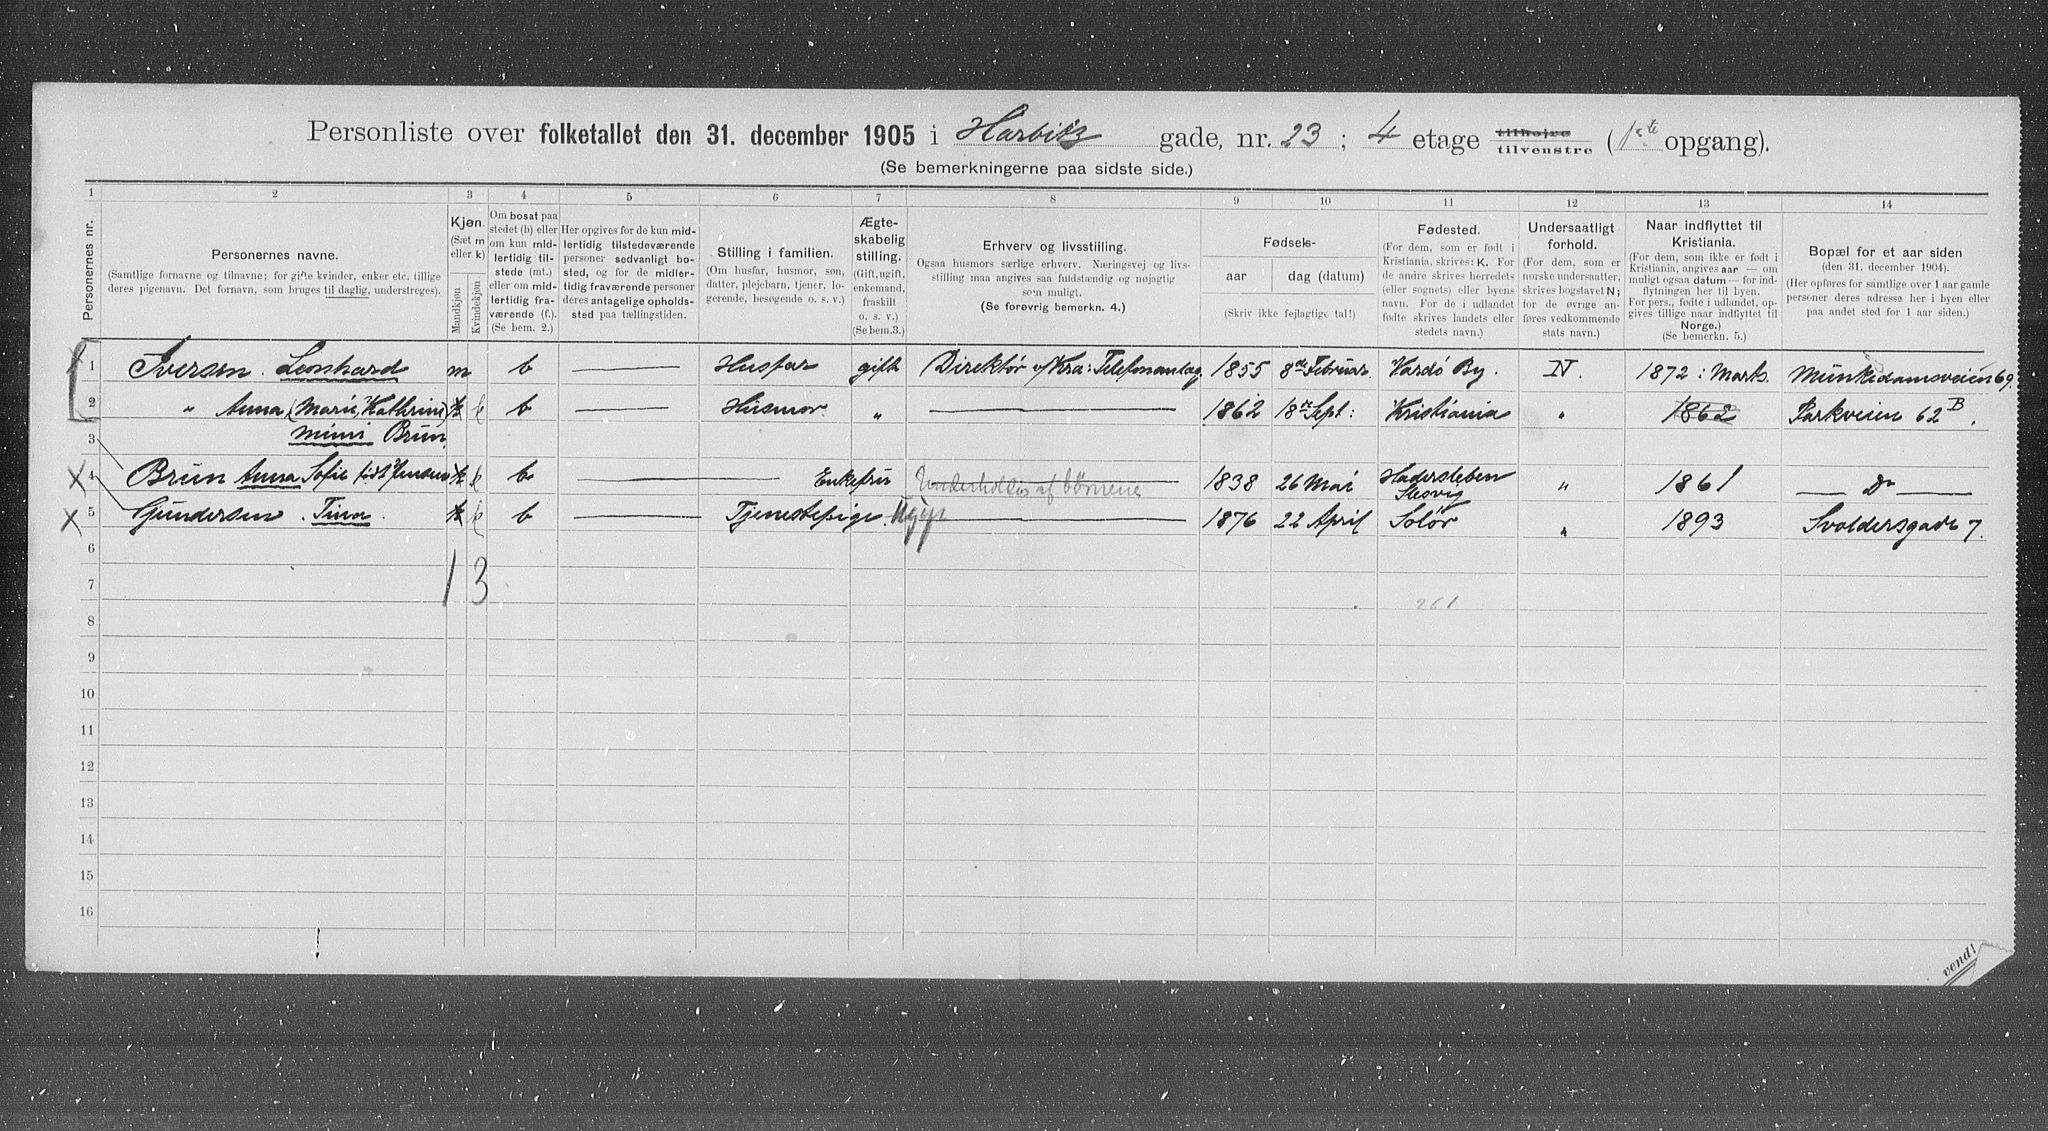 Personliste over folketallet den 31. december 1905 i Harbitz gade, nr. 23 ; 4 etage tilhøjre tilvenstre ( 1ste opgang).
(Se bemerkningerne paa sidste side.)
1 2 3 4 5 6 7 8 9 10 11 12 13 14
Personernes nr.
Personernes navne.
(Samtlige fornavne og tilnavne; for gifte kvinder, enker etc. tillige
deres pigenavn. Det fornavn, som bruges til daglig, understreges).
Kjøn.
(Sæt m
eller k)
Mandkjøn
Kvindekjøn
Om bosat paa
stedet (b) eller
om kun mid-
lertidig til-
stede (mt.)
eller om mid-
lertidig fra-
værende (f.).
(Se bem. 2.)
Her opgives for de kun mid-
lertidig tilstedeværende
personer sedvanlig bo-
sted, og for de midler-
tidig fraværende personer
deres antagelige opholds-
sted paa tællingstiden.
Stilling i familien.
(Om husfar, husmor, søn,
datter, plejebarn, tjener, lo-
gerende, besøgende o. s. v.)
Ægte-
skabelig
stilling.
(Gift, ugift,
enkemand,
fraskilt
o. s. v.)
(Se bem. 3.)
Erhverv og livsstilling.
Ogsaa husmors særlige erhverv. Næringsvej og livs-
stilling maa angives saa fuldstændig og nøjagtig
som muligt.
(Se forøvrig bemerkn. 4.)
Fødsels-
aar dag (datum)
(Skriv ikke fejlagtige tal!)
Fødested.
(For dem, som er født i
Kristiania, skrives: K. For
de andre skrives herredets
(eller sognets) eller byens
navn. For de i udlandet
fødte skrives landets eller
stedets navn.)
Undersaatligt
forhold.
(For dem, som er
norske undersaatter,
skrives bogstavet N;
for de øvrige an-
føres vedkommende
stats navn.)
Naar indflyttet til
Kristiania.
(For dem, som ikke er født i
Kristiania, angives aar — om
muligt ogsaa datum — for ind-
flytningen her til byen.
For pers., fødte i udlandet, op-
gives tillige naar indflyttet til
Norge.)
(Se bemerkn. 5.)
Bopæl for et aar siden
(den 31. december 1904).
(Her opføres for samtlige over 1 aar gamle
personer deres adresse her i byen eller
paa andet sted for 1 aar siden.)
1 Iversen. Leonhard m b — Husfar gift Direktør v/ Kra: Telefonanlæg. 1855 8de Februar. Vardö By. N. 1872 : Marts. Munkedamsveien 69.
2 " Anna (Marie, Kathrine) k b — Husmor. " — 1862 18de Sept: Kristiania " 1862 Parkveien 62 B.
3 Mimi Brun.
4 Brun Anna Sofie født Jensen k b — Enkefru Underholdes af børnene 1838 26 Mai Hadersleben Slesvig " 1861 — Do —
5 Gundersen. Tina. k b — Tjenestepige. Ugift — 1876 22 April Solör " 1893 Svoldersgade 7.
6
1 3
7
261
8
9
10
11
12
13
14
15
16
vend!